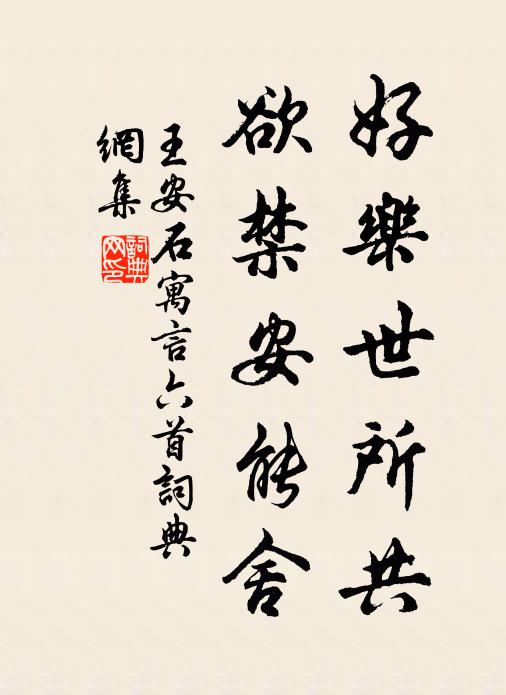 好樂世所共
欲禁安能舍
王安石寓言六首詞典
網集
詞典
网印